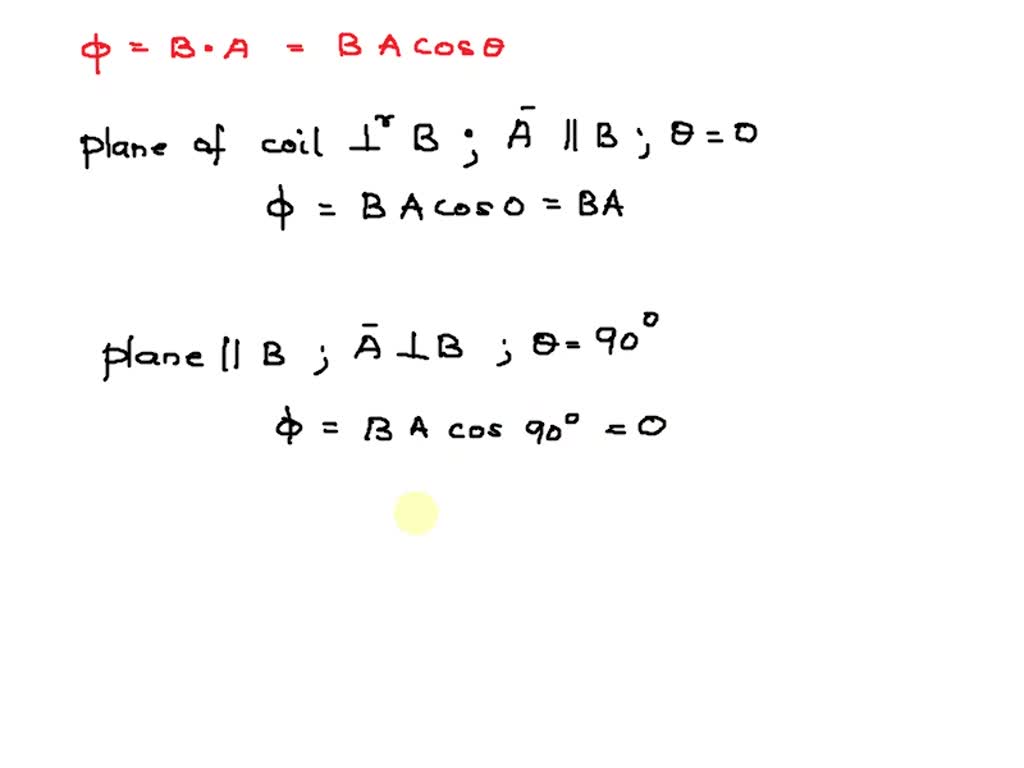 ϕ = B • A = B A cos θ
plane of coil ⊥ʳ B ; Ā ∥ B ; θ = 0
ϕ = B A cos 0 = BA
plane ∥ B ; Ā ⊥ B ; θ = 90°
ϕ = B A cos 90° = 0